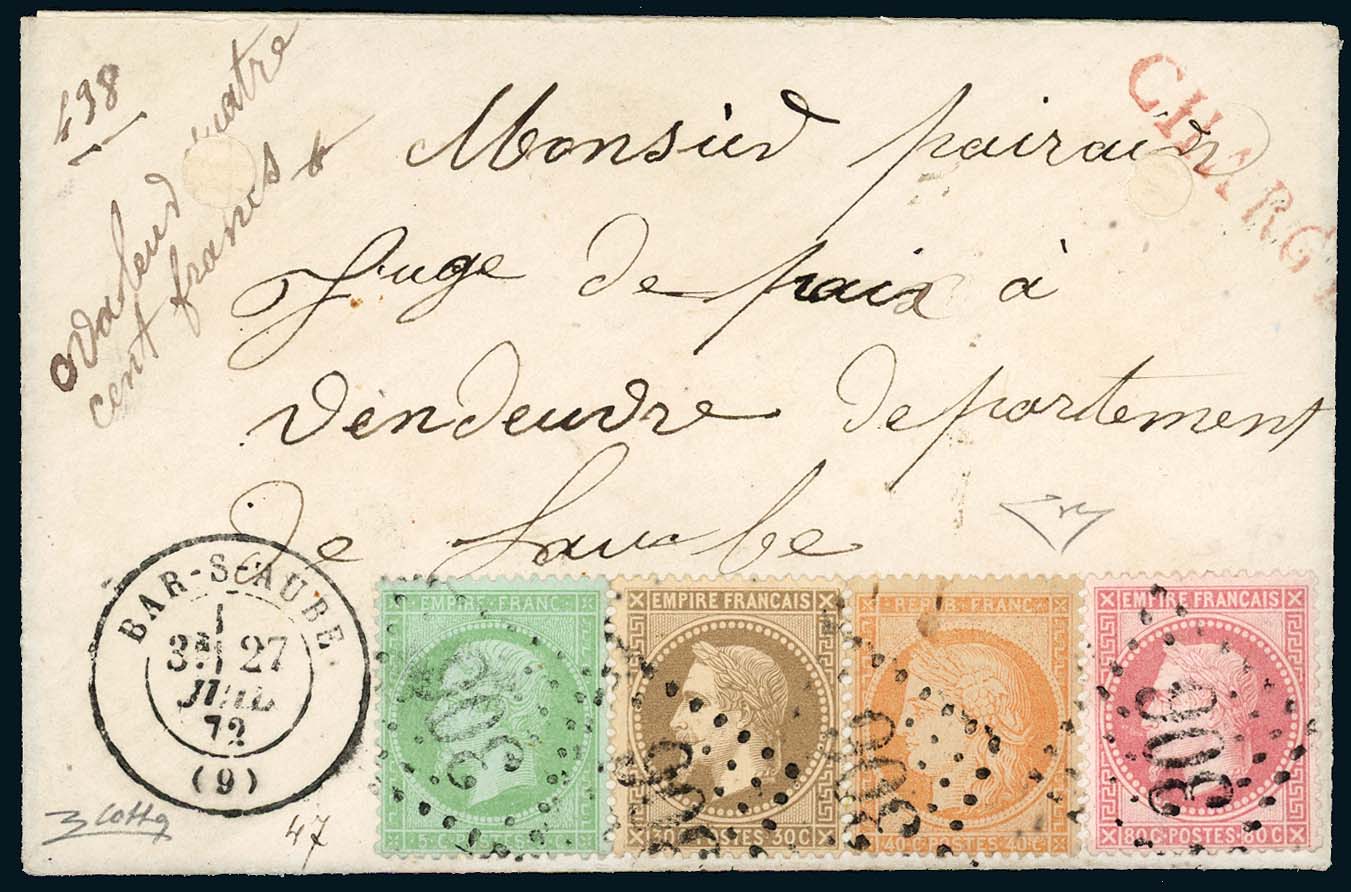 438
Valeur quatre
cent francs
CHARGÉ
Monsieur pairain
Juge de paix à
vendeuvre departement
de laube
BAR-S-AUBE.
3E 27
JUIL
72
(9)
47
EMPIRE FRANC
5 C POSTES 5 C
306
EMPIRE FRANÇAIS
30 C POSTES 30 C
306
REPUB FRANC
40 C POSTES 40 C
306
EMPIRE FRANÇAIS
80 C POSTES 80 C
306